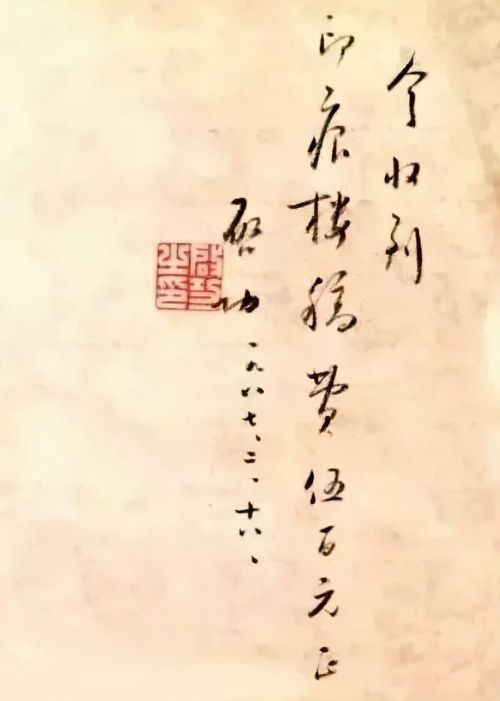 今收到
印痕楼稿费伍百元正
启功
一九八七、二、十六、
启功之印